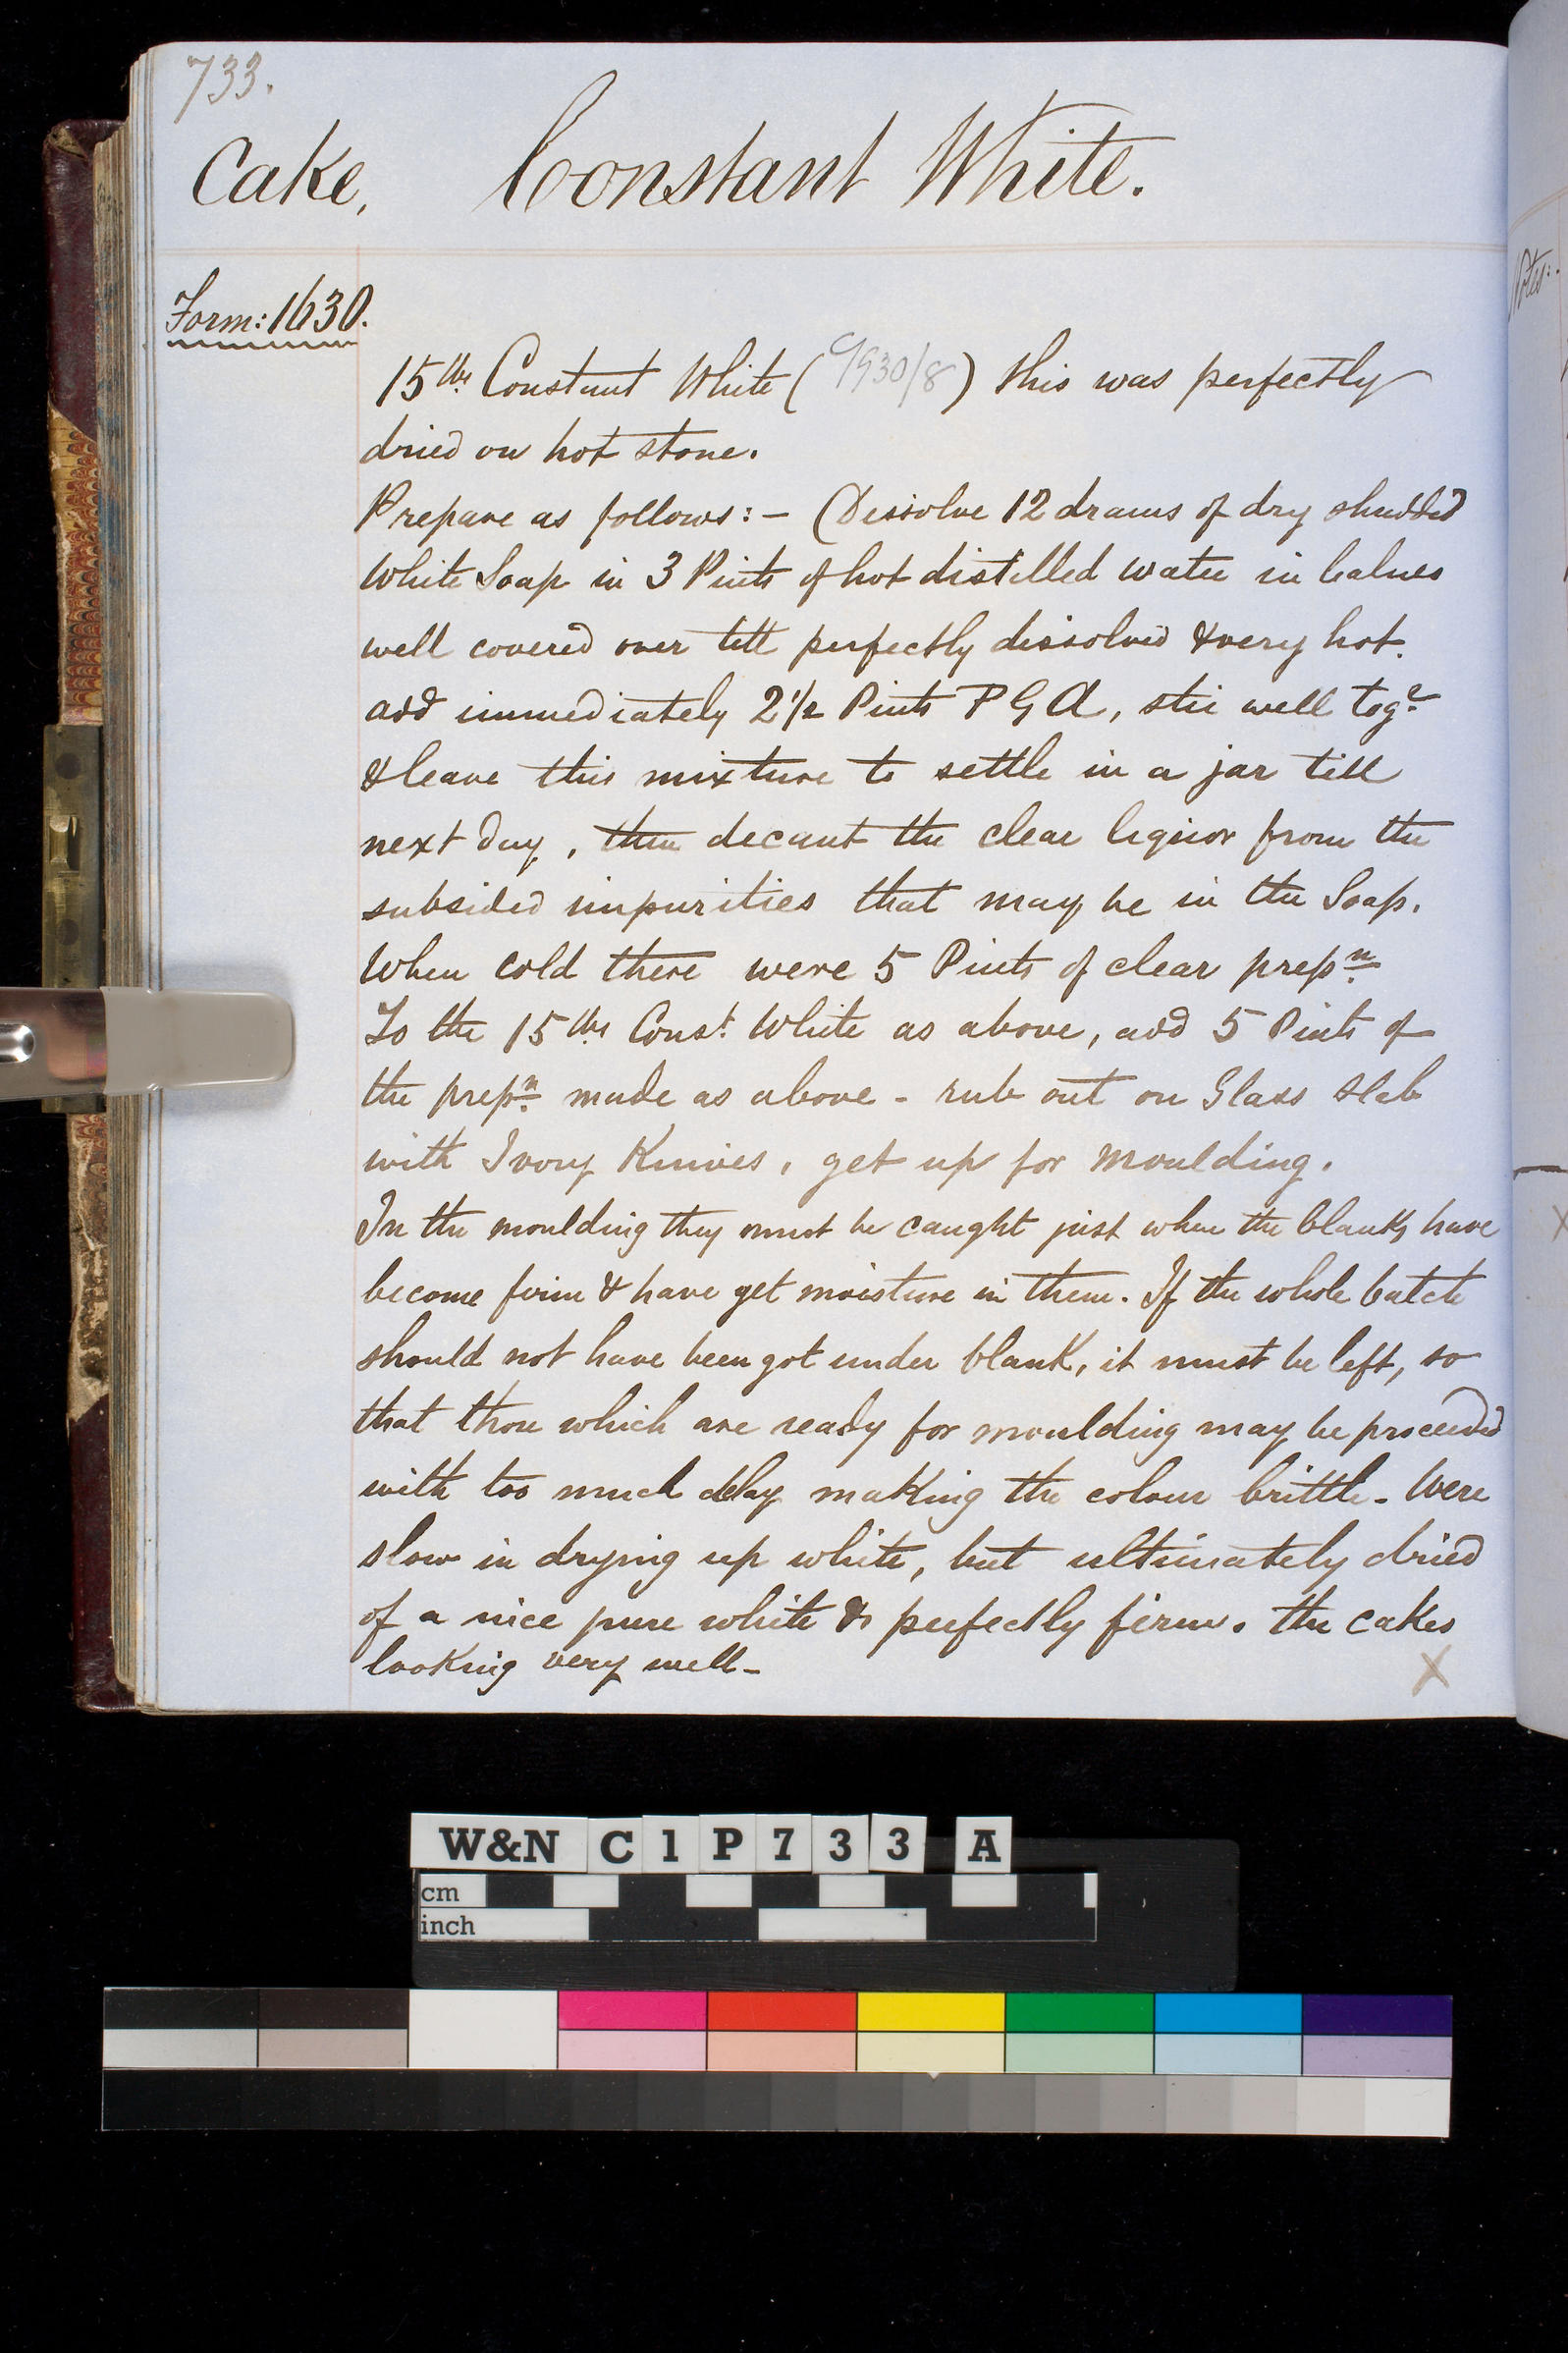 733.
Cake, Constant White.
Form: 1630.
15 lbs Constant White (9930/8) this was perfectly
dried on hot stone.
Prepare as follows:- (Dissolve 12 drams of dry shredded
White Soap in 3 Pints of hot distilled water in balnes
well covered over till perfectly dissolved & very hot.
add immediately 2 1/2 Pints P G A, stir well togr
& leave this mixture to settle in a jar till
next day, then decant the clear liquor from the
subsided impurities that may be in the Soap.
When cold there were 5 Pints of clear prepn.
To the 15 lbs Const. White as above, add 5 Pints of
the prepn. made as above - rub out on Glass Slab
with Ivory Knives, get up for moulding.
In the moulding they must be caught just when the blanks have
become firm & have yet moisture in them. If the whole batch
should not have been got under blank, it must be left, so
that those which are ready for moulding may be proceeded
with too much delay making the colour brittle. Were
slow in drying up white, but ultimately dried
of a nice pure white & perfectly firm. the cakes
looking very well -
X
Notes:
W&N C 1 P 7 3 3 A
cm
inch